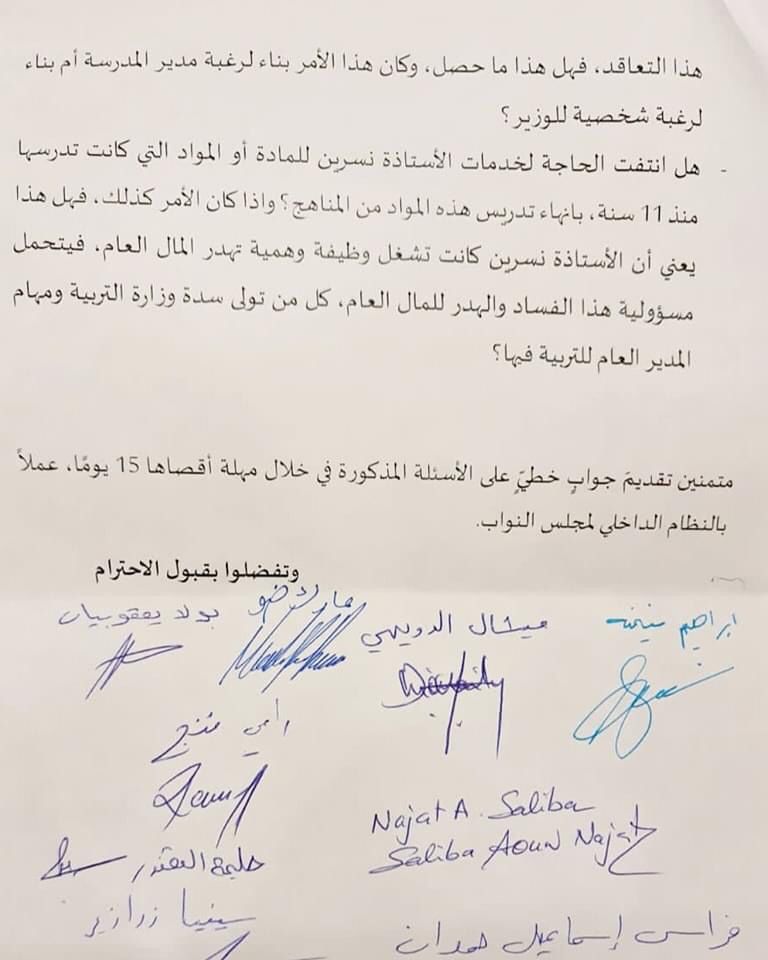 هذا التعاقد، فهل هذا ما حصل، وكان هذا الأمر بناء لرغبة مدير المدرسة أم بناء
لرغبة شخصية للوزير؟
- هل انتفت الحاجة لخدمات الأستاذة نسرين للمادة أو المواد التي كانت تدرسها
منذ 11 سنة، بانهاء تدريس هذه المواد من المناهج؟ واذا كان الأمر كذلك، فهل هذا
يعني أن الأستاذة نسرين كانت تشغل وظيفة وهمية تهدر المال العام، فيتحمل
مسؤولية هذا الفساد والهدر للمال العام، كل من تولى سدة وزارة التربية ومهام
المدير العام للتربية فيها؟
متمنين تقديمَ جوابٍ خطيّ على الأسئلة المذكورة في خلال مهلة أقصاها 15 يومًا، عملاً
بالنظام الداخلي لمجلس النواب.
وتفضلوا بقبول الاحترام
ابراهيم منيمنه
ميشال الدويهي
مارك ضو
بولا يعقوبيان
رامي فنج
Najat A. Saliba
Saliba Aoun Najat
حليمة القعقور
سينتيا زرازير
فراس إسماعيل حمدان